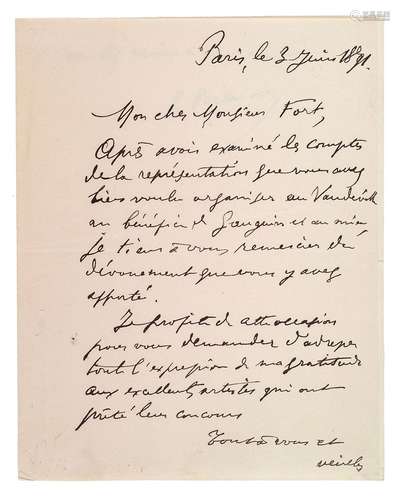 Paris, le 3 Juin 1891.
Mon cher Monsieur Fort,
Après avoir examiné les comptes
de la représentation que vous avez
bien voulu organiser au Vaudeville
au bénéfice de Gauguin et au mien
je tiens à vous remercier du
dévouement que vous y avez
apporté.
Je profite de cette occasion
pour vous demander d'adresser
tout l'expression de ma gratitude
aux excellents artistes qui ont
prêté leur concours
Tout à vous et